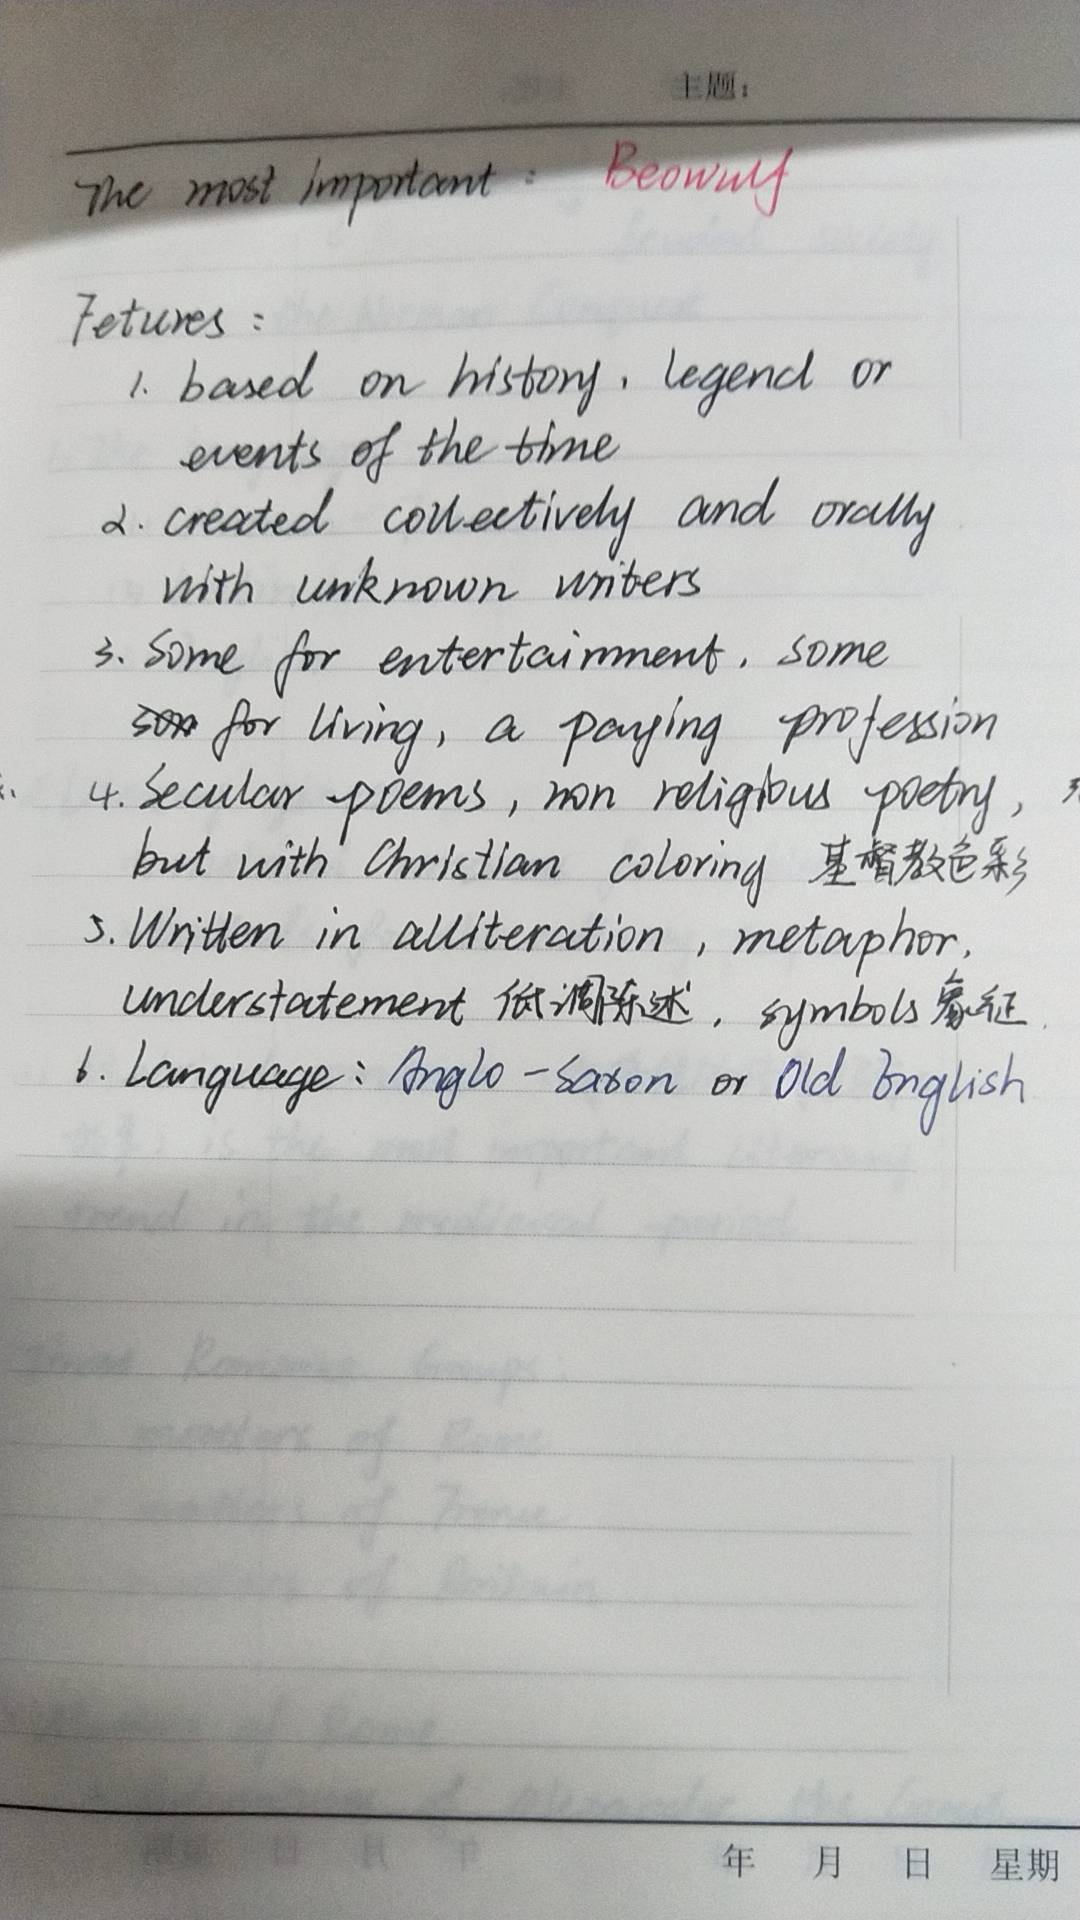 主题：
The most important : Beowulf
Fetures :
1. based on history, legend or
events of the time
2. created collectively and orally
with unknown writers
3. Some for entertainment, some
for living, a paying profession
4. Secular poems, non religious poetry,
but with Christian coloring 基督教色彩
5. Written in alliteration, metaphor,
understatement 低调陈述, symbols 象征.
6. Language: Anglo-Saxon or Old English
年 月 日 星期